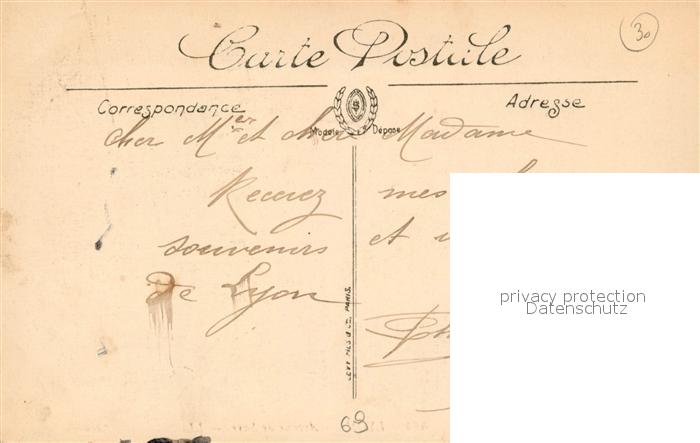 30
Carte Postale
Correspondance
Adresse
Modèle Déposé
cher Mer et cher Madame
Recevez mes
souvenirs et
de Lyon
LEVY FILS & Cie, PARIS.
privacy protection
Datenschutz
69